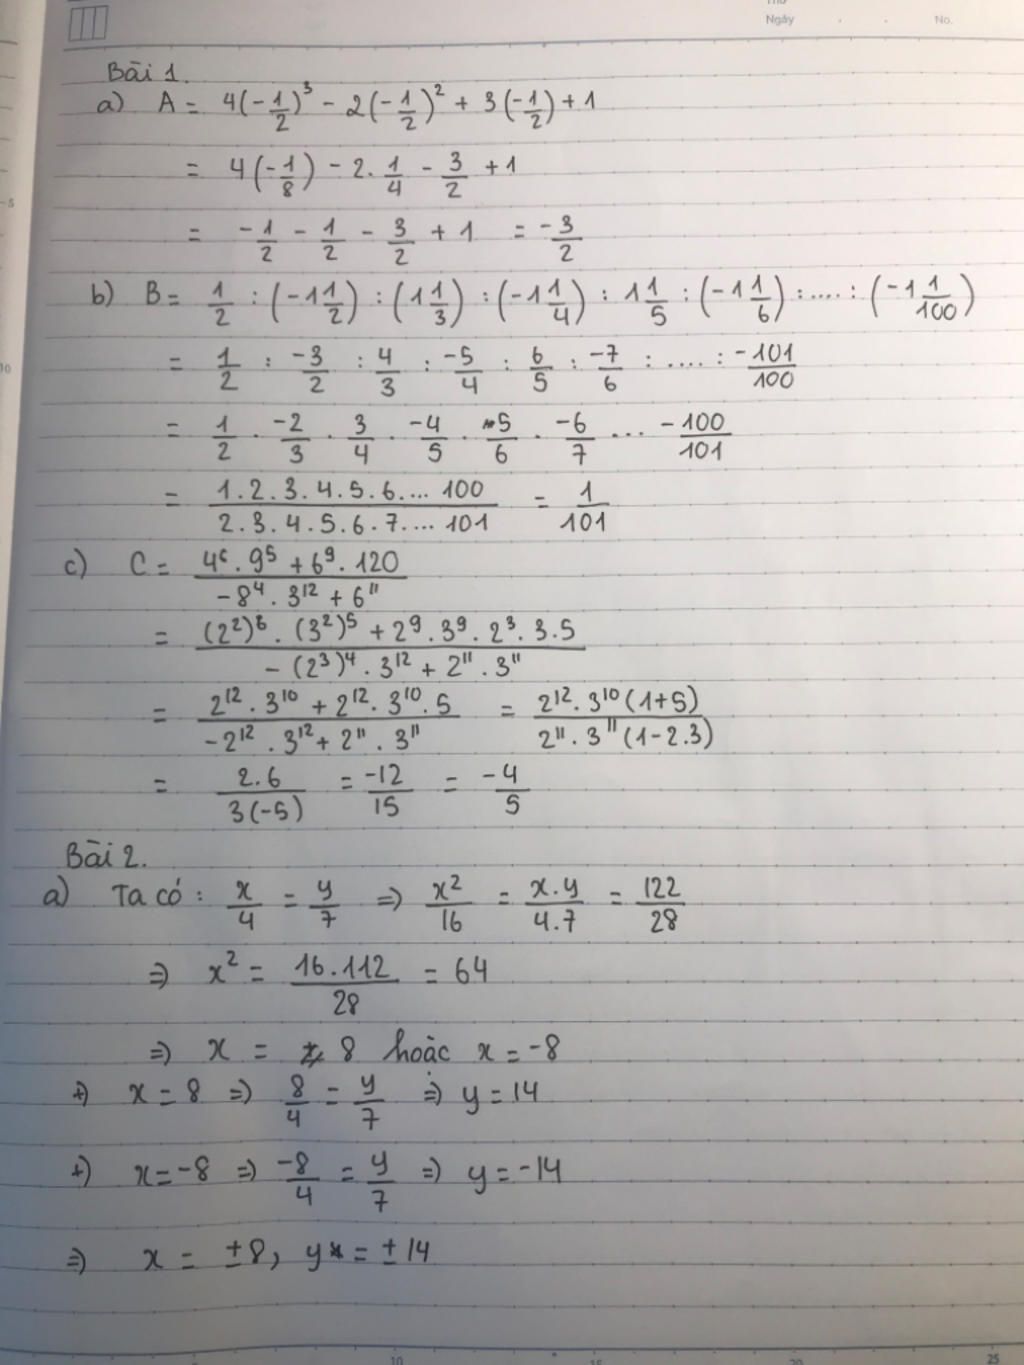 Ngày No.
Bài 1.
a) A = 4(-1/2)³ - 2(-1/2)² + 3(-1/2) + 1
= 4(-1/8) - 2. 1/4 - 3/2 + 1
= -1/2 - 1/2 - 3/2 + 1 = -3/2
b) B = 1/2 : (-1 1/2) : (1 1/3) : (-1 1/4) : 1 1/5 : (-1 1/6) : .... : (-1 1/100)
= 1/2 : -3/2 : 4/3 : -5/4 : 6/5 : -7/6 : .... : -101/100
= 1/2 . -2/3 . 3/4 . -4/5 . 5/6 . -6/7 ... -100/101
= 1.2.3.4.5.6.... 100 / 2.3.4.5.6.7.... 101 = 1/101
c) C = 4⁶ . 9⁵ + 6⁹ . 120 / -8⁴ . 3¹² + 6¹¹
= (2²)⁶ . (3²)⁵ + 2⁹ . 3⁹ . 2³ . 3.5 / -(2³)⁴ . 3¹² + 2¹¹ . 3¹¹
= 2¹² . 3¹⁰ + 2¹² . 3¹⁰ . 5 / -2¹² . 3¹² + 2¹¹ . 3¹¹ = 2¹² . 3¹⁰ (1+5) / 2¹¹ . 3¹¹ (1-2.3)
= 2.6 / 3(-5) = -12/15 = -4/5
Bài 2.
a) Ta có : x/4 = y/7 => x²/16 = x.y/4.7 = 122/28
=> x² = 16.112/28 = 64
=> x = 8 hoặc x = -8
+) x = 8 => 8/4 = y/7 => y = 14
+) x = -8 => -8/4 = y/7 => y = -14
=> x = ±8, y = ±14
10 15 20 25